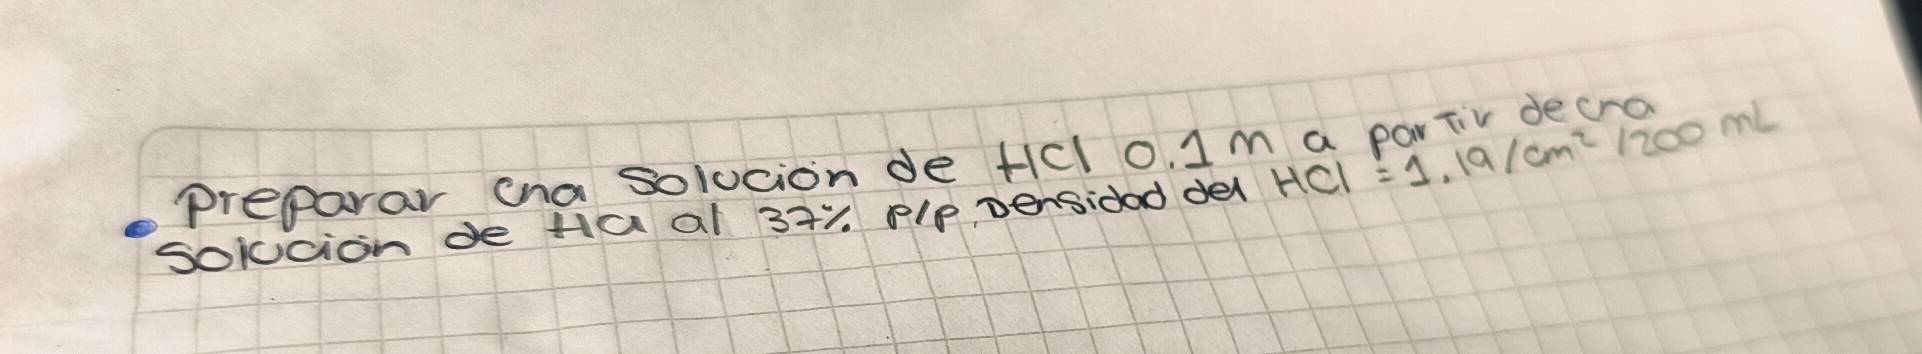 preparar una solución de HCl 0.1 m a partir de una
solución de HCl al 37% P/P, Densidad del HCl = 1.19/cm² 1200 mL